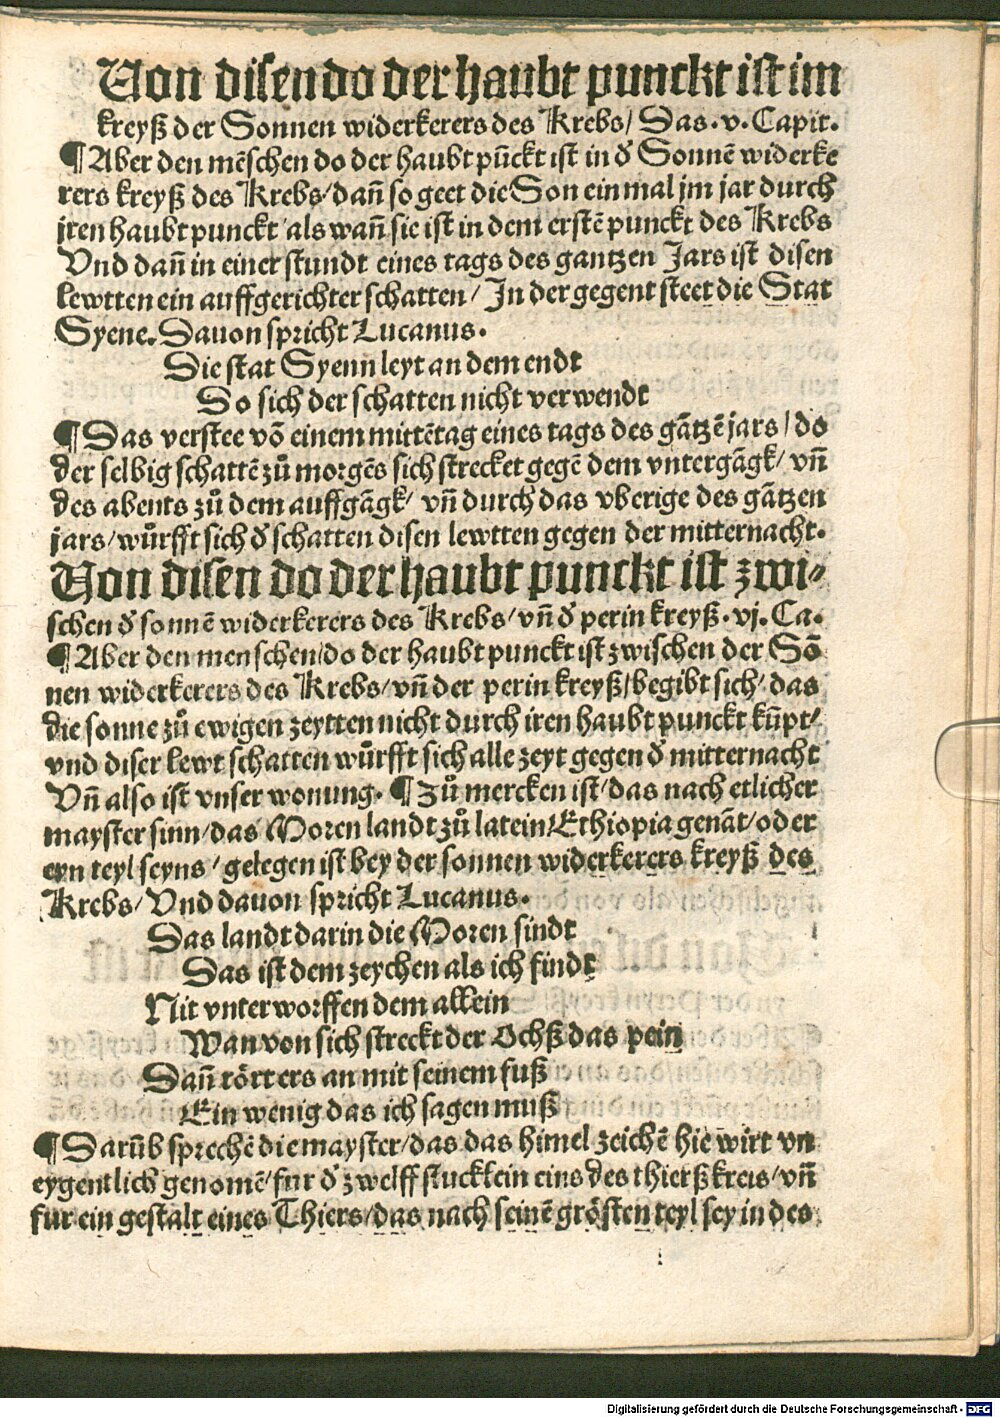 Von disen do der haubt punckt ist im
kreyß der Sonnen widerkerers des Krebs/ Das .v. Capit.
¶ Aber den mēschen do der haubt pūckt ist in d̄ Sonnē widerke
rers kreyß des Krebs/ dañ so geet die Son ein mal jm jar durch
jren haubt punckt/ als wañ sie ist in dem erstē punckt des Krebs
Vnd dañ in einer stundt eines tags des gantzen Jars ist disen
lewtten ein auffgerichter schatten/ In der gegent steet die Stat
Syene. Dauon spricht Lucanus.
Die stat Syenn leyt an dem endt
So sich der schatten nicht verwendt
¶ Das verstee vō einem mittētag eines tags des gātzē jars/ do
der selbig schattē zů morgēs sich strecket gegē dem vntergāgk/ vñ
des abents zů dem auffgāgk/ vñ durch das vberige des gātzen
jars/ wůrfft sich d̄ schatten disen lewtten gegen der mitternacht.
Von disen do der haubt punckt ist zwi⸗
schen d̄ sonnē widerkerers des Krebs/ vñ d̄ perin kreyß. vj. Ca.
¶ Aber den menschen/ do der haubt punckt ist zwischen der Sō
nen widerkerers des Krebs/ vñ der perin kreyß/ begibt sich/ das
die sonne zů ewigen zeytten nicht durch iren haubt punckt kūpt/
vnd diser lewt schatten wůrfft sich alle zeyt gegen d̄ mitternacht
Vñ also ist vnser wonung. ¶ Zů mercken ist/ das nach etlicher
mayster sinn/ das Moren landt zů latein/ Ethiopia genāt/ oder
eyn teyl seyns/ gelegen ist bey der sonnen widerkerers kreyß des
Krebs/ Vnd dauon spricht Lucanus.
Das landt darin die Moren sindt
Das ist dem zeychen als ich findt
Nit vnterworffen dem allein
Wan von sich streckt der Ochß das pein
Dañ rörters an mit seinem fuß
Ein wenig das ich sagen muß
¶ Darūb sprechē die mayster/ das das himel zeichē hie wirt vn
eygentlich genomē/ fur d̄ zwelff stucklein eins des thierßkreis/ vñ
fur ein gestalt eines Thiers/ das nach seinē grösten teyl sey in des
Digitalisierung gefördert durch die Deutsche Forschungsgemeinschaft - DFG